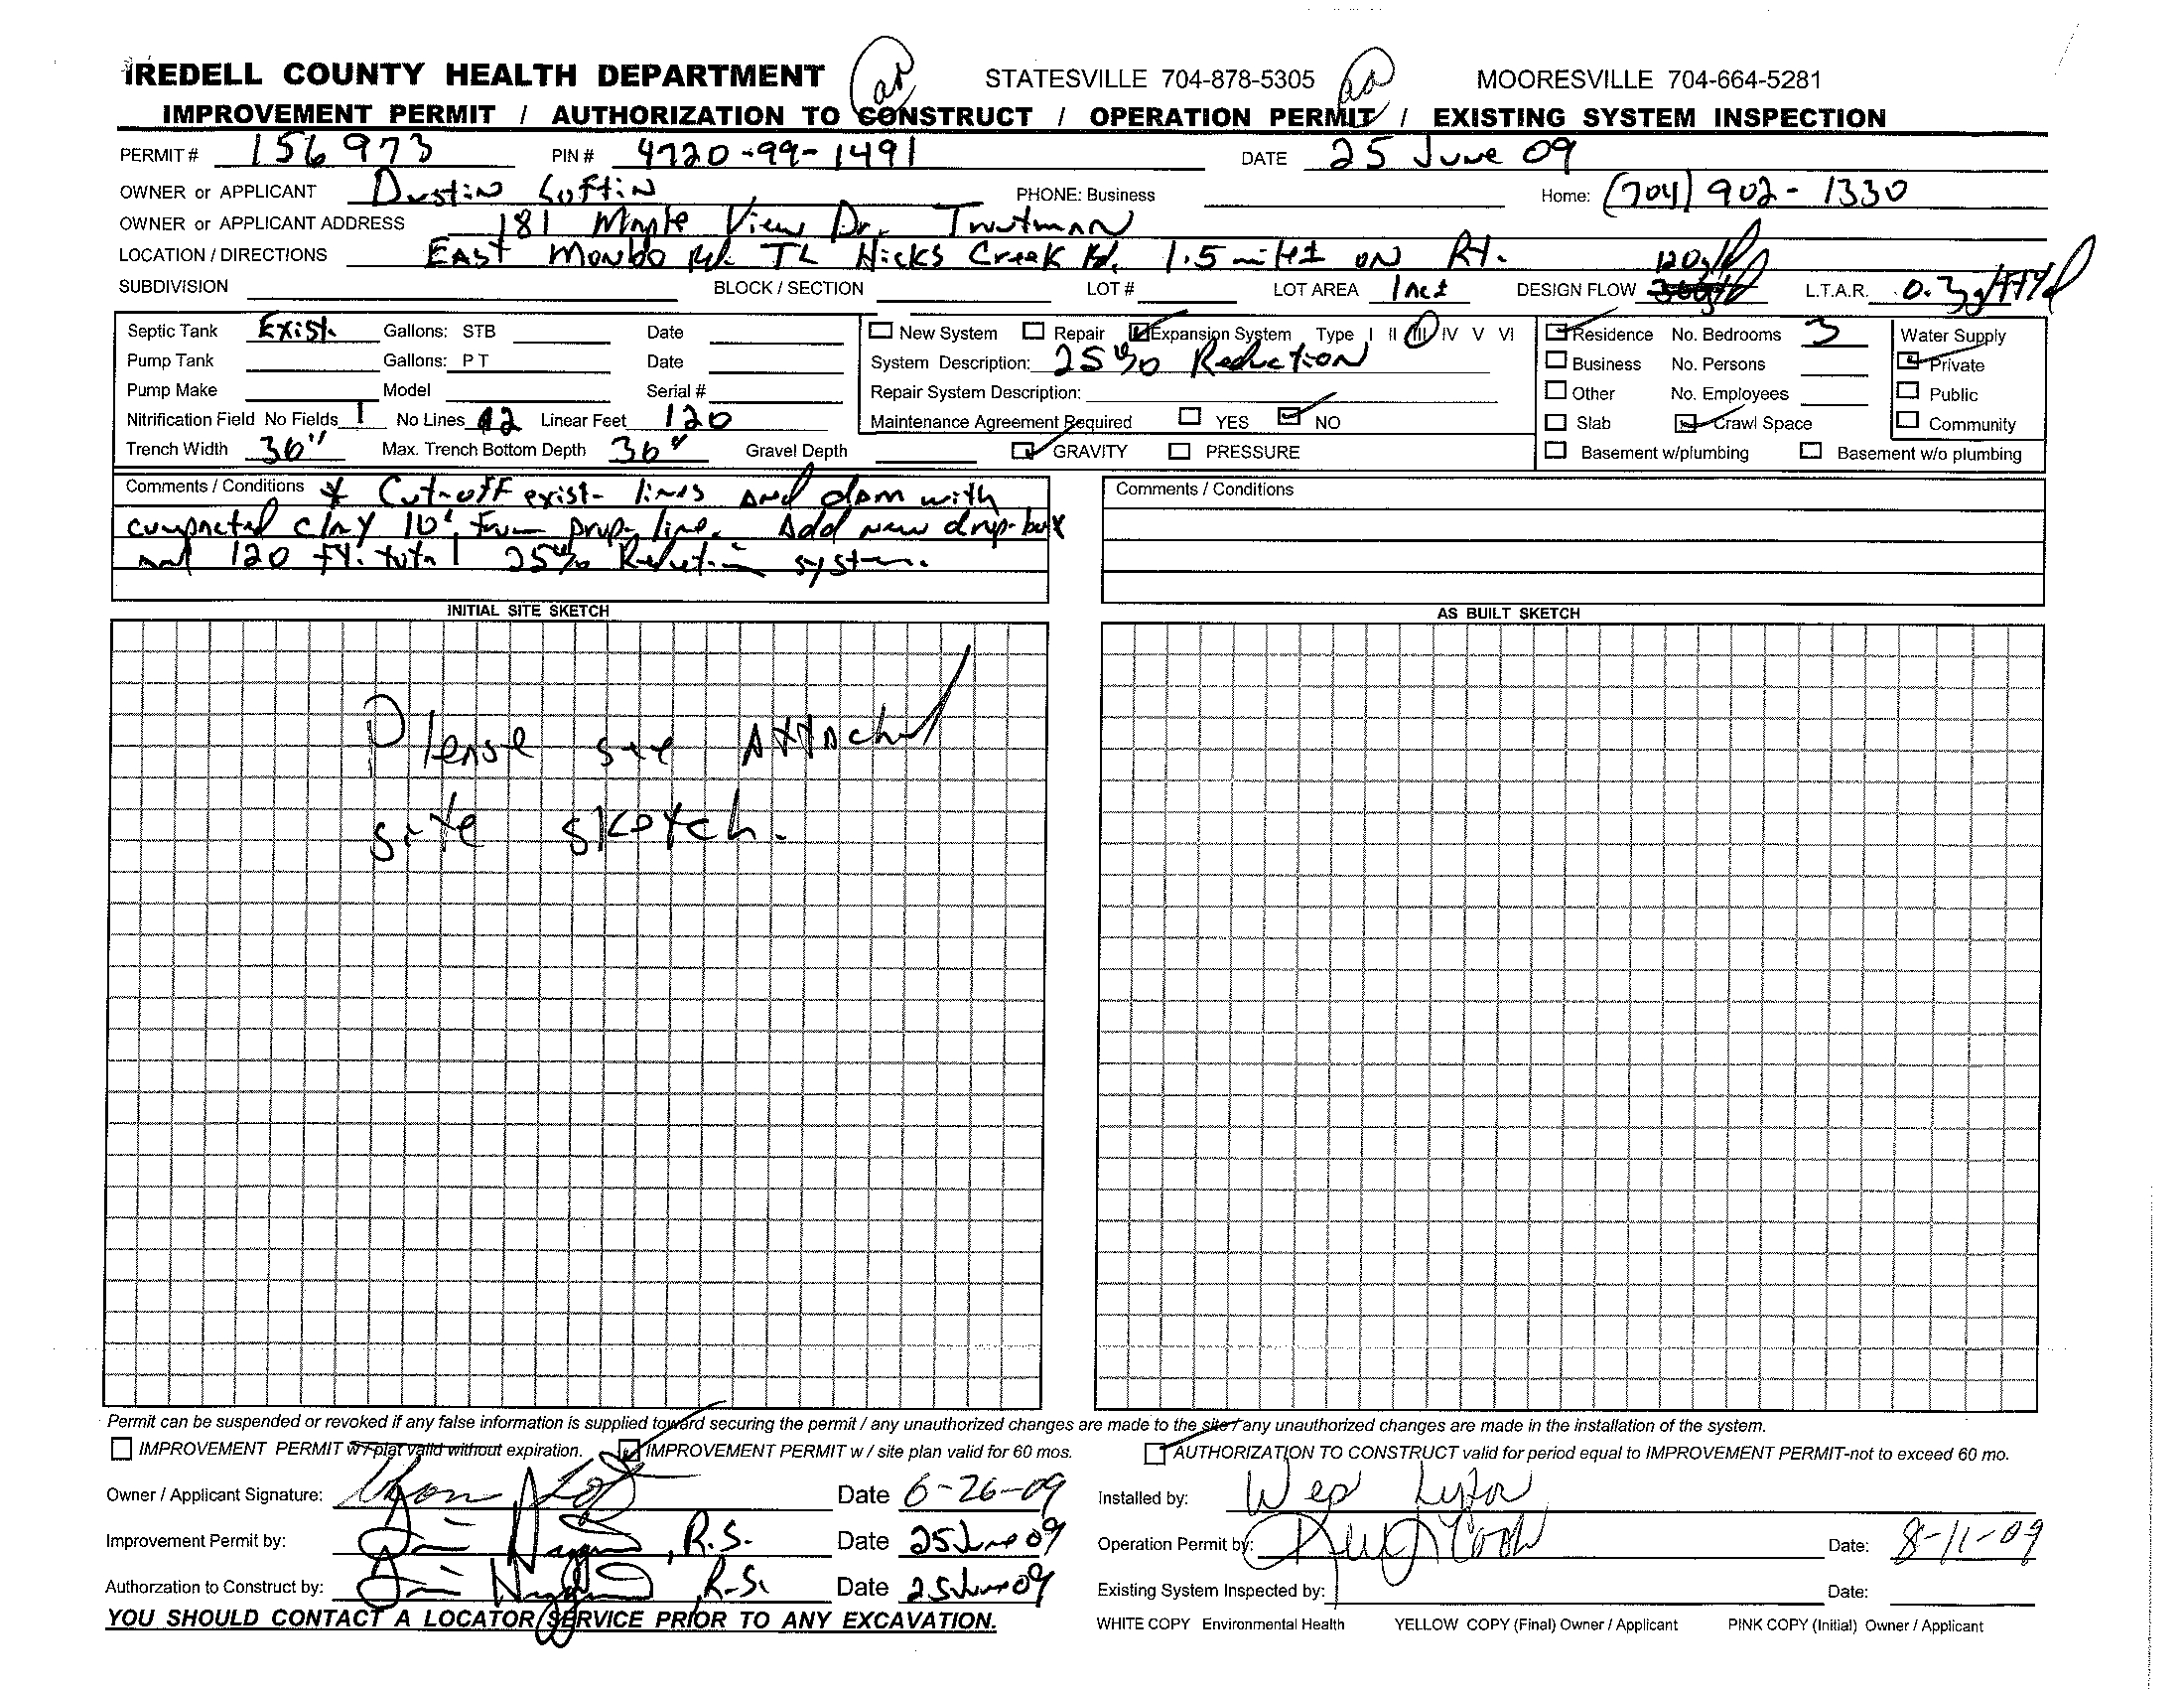 IREDELL COUNTY HEALTH DEPARTMENT STATESVILLE 704-878-5305 MOORESVILLE 704-664-5281
IMPROVEMENT PERMIT / AUTHORIZATION TO CONSTRUCT / OPERATION PERMIT / EXISTING SYSTEM INSPECTION
PERMIT # 156973 PIN # 4720-99-1491 DATE 25 June 09
OWNER or APPLICANT Dustin Loftin PHONE: Business Home: (704) 902-1330
OWNER or APPLICANT ADDRESS 181 Maple View Dr. Troutman
LOCATION / DIRECTIONS East Monbo Rd. TL Hicks Creek Rd. 1.5 miles ± on Rt.
120g/d
SUBDIVISION BLOCK / SECTION LOT # LOT AREA 1 ac± DESIGN FLOW 360g/d L.T.A.R. 0.3g/ft²/d
Septic Tank Exist. Gallons: STB Date New System Repair Expansion System Type I II III IV V VI Residence No. Bedrooms 3 Water Supply
Pump Tank Gallons: P T Date System Description: 25% Reduction Business No. Persons Private
Pump Make Model Serial # Repair System Description: Other No. Employees Public
Nitrification Field No Fields 1 No Lines 2 Linear Feet 120 Maintenance Agreement Required YES NO Slab Crawl Space Community
Trench Width 36" Max. Trench Bottom Depth 36" Gravel Depth GRAVITY PRESSURE Basement w/plumbing Basement w/o plumbing
Comments / Conditions * Cut-off exist. lines and dam with
compacted clay 10' from prop. line. Add new drop-box
and 120 ft. total 25% Reduction system.
Comments / Conditions
INITIAL SITE SKETCH AS BUILT SKETCH
Please see attached
site sketch.
Permit can be suspended or revoked if any false information is supplied toward securing the permit / any unauthorized changes are made to the site / any unauthorized changes are made in the installation of the system.
IMPROVEMENT PERMIT w / plat valid without expiration. IMPROVEMENT PERMIT w / site plan valid for 60 mos. AUTHORIZATION TO CONSTRUCT valid for period equal to IMPROVEMENT PERMIT-not to exceed 60 mo.
Owner / Applicant Signature: Date 6-26-09 Installed by: Wes
Improvement Permit by: , R.S. Date 25 June 09 Operation Permit by: Cook Date: 8-11-09
Authorzation to Construct by: R.S. Date 25 June 09 Existing System Inspected by: Date:
YOU SHOULD CONTACT A LOCATOR SERVICE PRIOR TO ANY EXCAVATION. WHITE COPY Environmental Health YELLOW COPY (Final) Owner / Applicant PINK COPY (Initial) Owner / Applicant